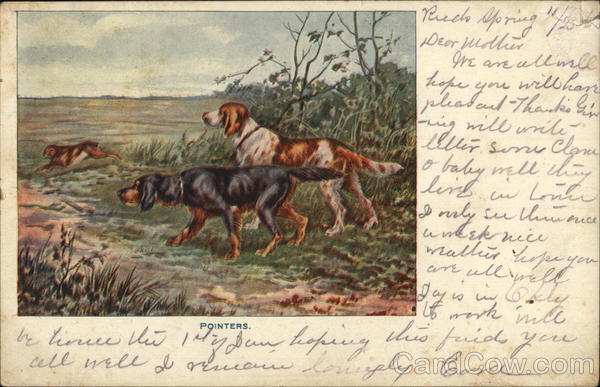 Reeds Spring 11/25
Dear Mother
We are all well
hope you will have
pleasant Thanks Giv-
ing will write
letter soon
baby well they
live in town
I only see them once
a week nice
weather hope you
are all well
Jay is in
to work will
POINTERS.
be home the 1st of Jan hoping this finds you
all well I remain
CardCow.com